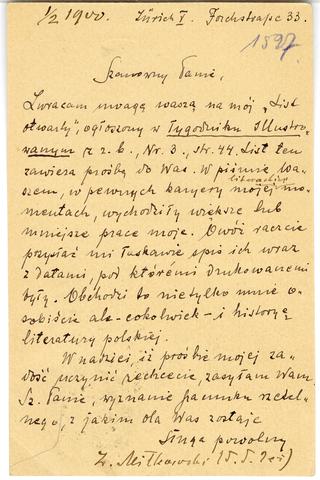 1/2 1900. Zürich V. Forchstrasse 33.
1597.
Szanowny Panie,
Zwracam uwagę waszą na mój „List
otwarty”, ogłoszony w Tygodniku Illustro-
wanym z r. b., Nr. 3., str. 44. List ten
zawiera prośbę do Was. W piśmie Wa-
szem, w pewnych karyery mojej literackiej mo-
mentach, wychodziły większe lub
mniejsze prace moje. Owóż raczcie
przysłać mi łaskawie spis ich wraz
z datami, pod któremi drukowanemi
były. Obchodzi to nietylko mnie o-
sobiście ale - cokolwiek - i historyę
literatury polskiej.
W nadziei, iż prośbie mojej za-
dość uczynić zechcecie, zasyłam Wam,
Sz. Panie, wyznanie szacunku rzetel-
nego, z jakim dla Was zostaję
Sługa powolny
Z. Miłkowski (T. T. Jeż)